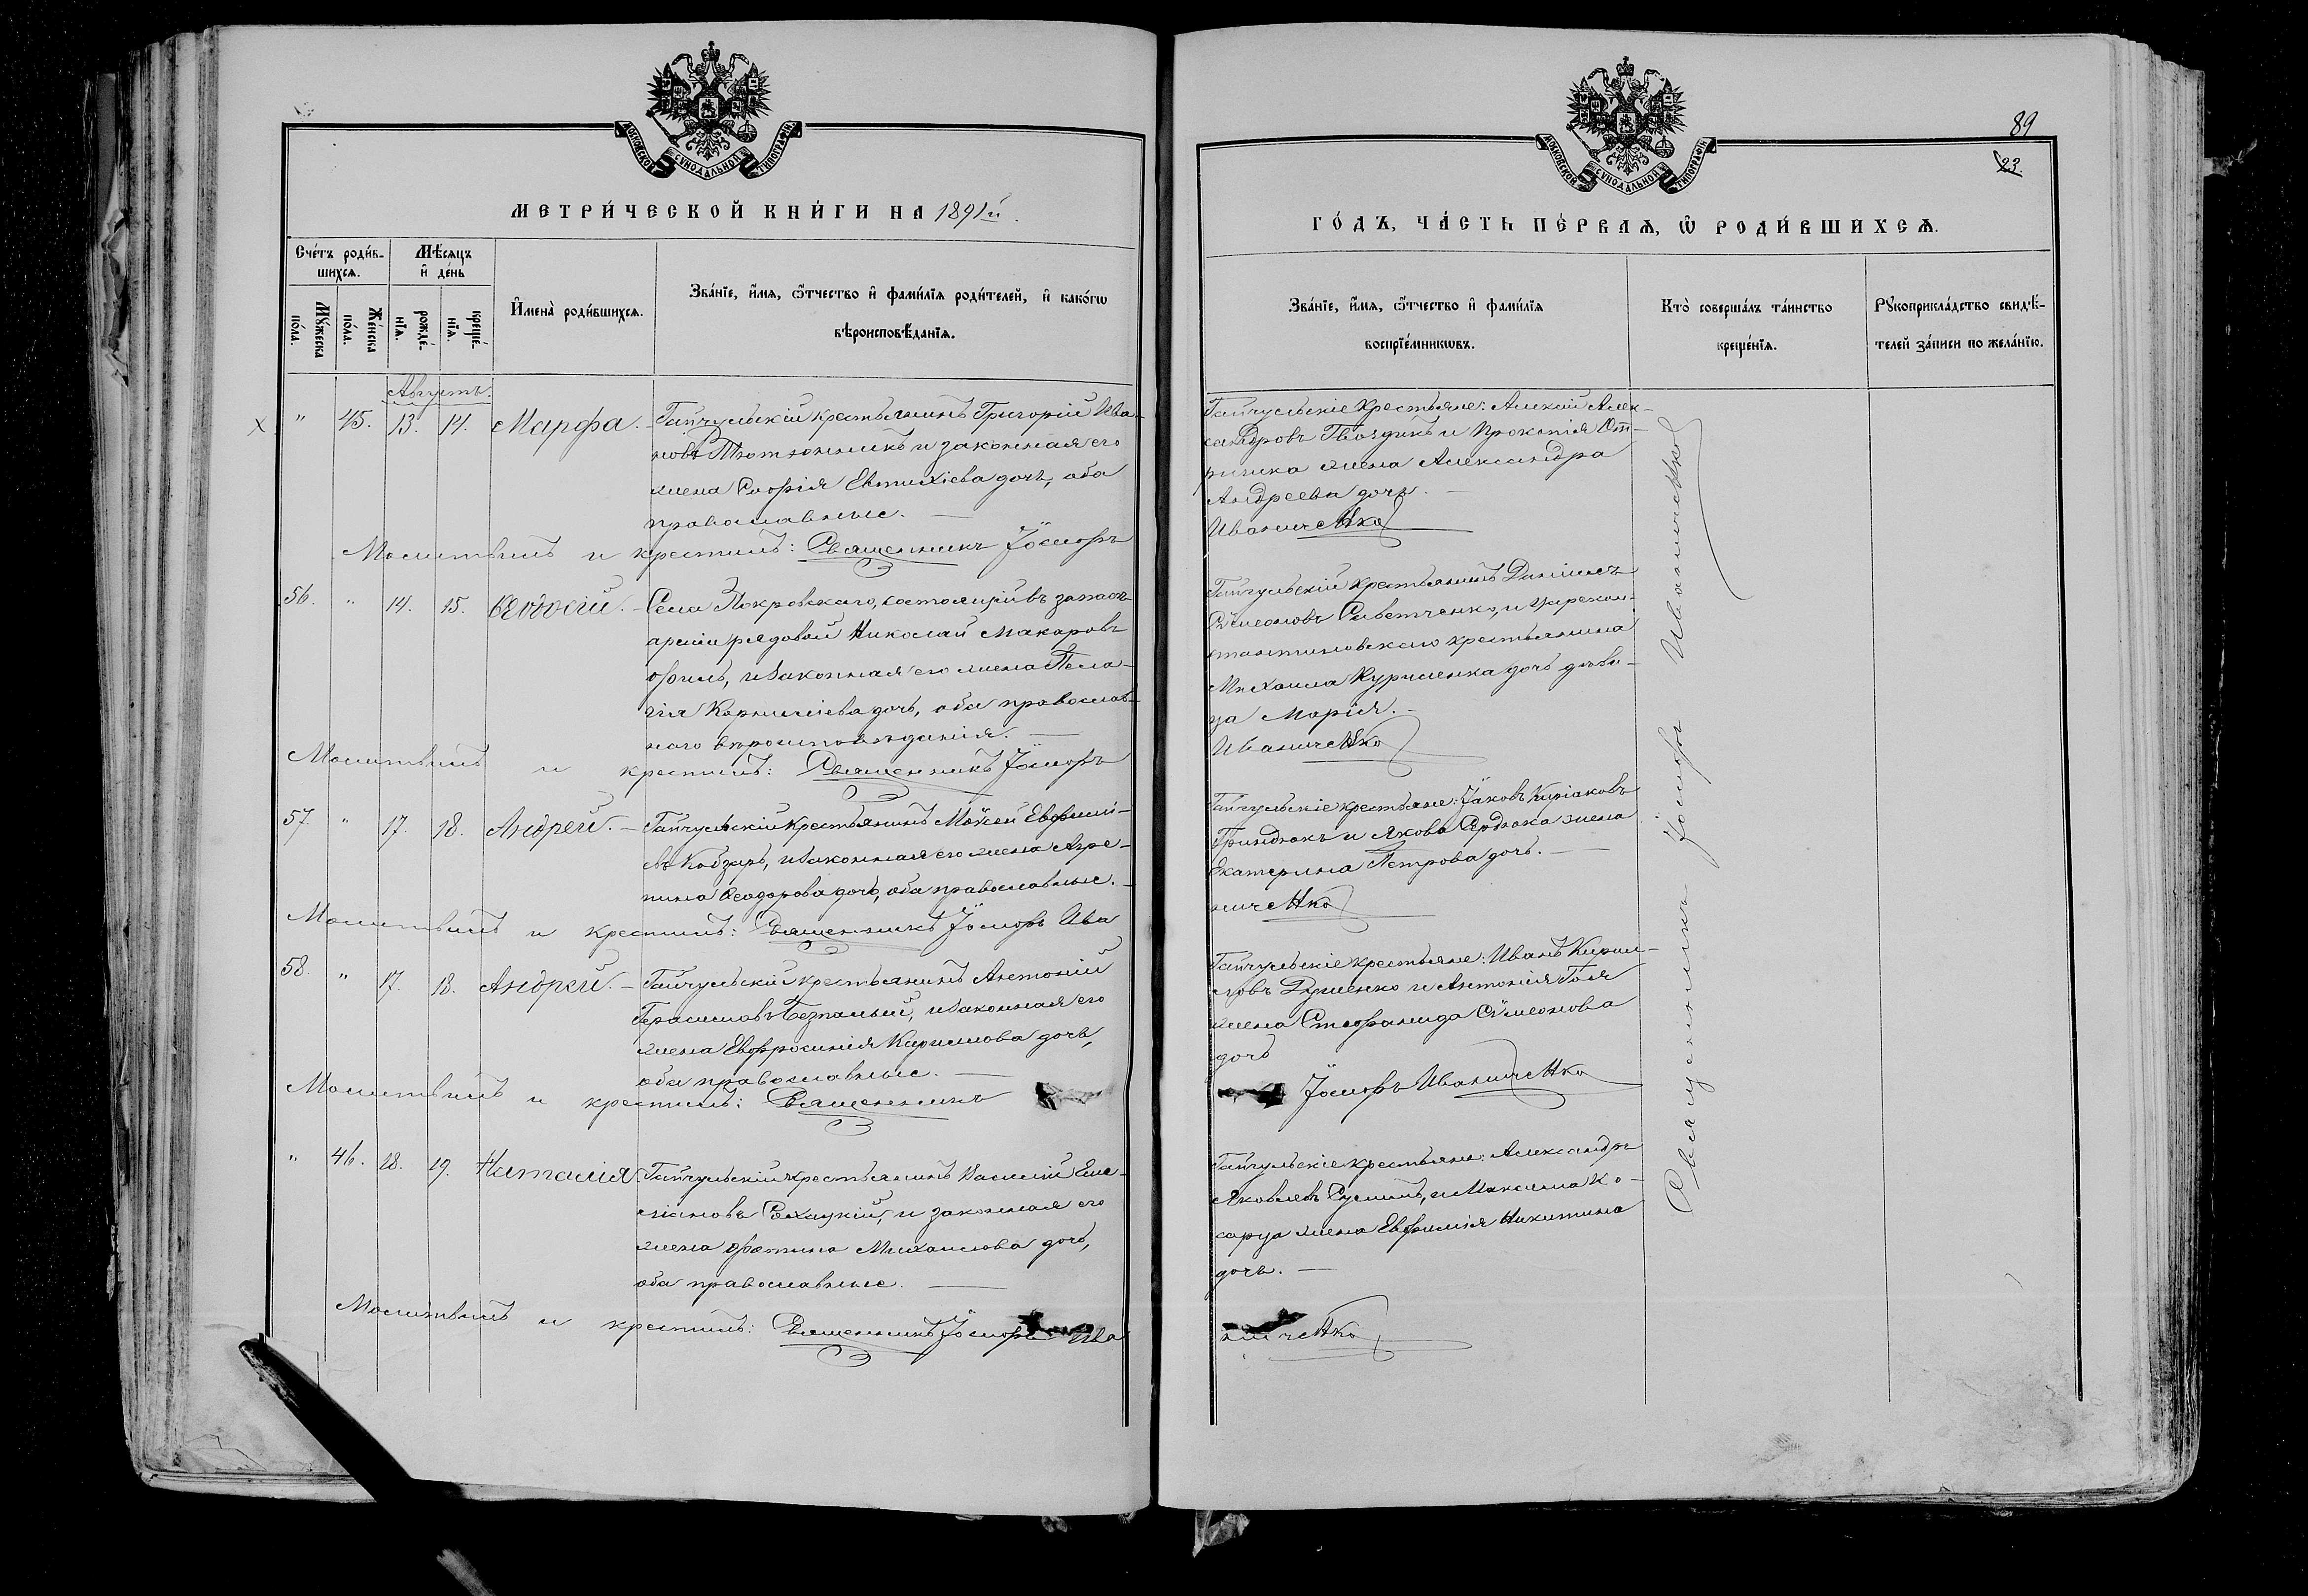 89
23.
МОСКОВСКОЙ СѴНОДАЛЬНОЙ ТИПОГРАФІИ
МЕТРИ́ЧЕСКОЙ КНИ́ГИ НА 1891й.
Сче́тъ роди́в-
шихся.
Мѣ́сяцъ
и҆ де́нь
Мꙋ́жеска по́ла.
Же́нска по́ла.
рожде́-
нїя.
креще́-
нїя.
И҆мена̀ роди́вшихся.
Зва́нїе, и҆́мя, ѻ҆́тчество и҆ фами́лїя роди́телей, и҆ како́гѡ
вѣроисповѣ́данїя.
Августъ.
" 45. 13. 14. Марфа. Гайчульскій крестьянинъ Григорій Ива-
новъ Тютюнникъ и законная его
жена Софія Евтихіева дочь, оба
православные.
Молитвилъ и крестилъ: Священникъ Іосифъ
56. " 14. 15. Ѳеодосій. Села Покровскаго, состоящій въ запасѣ
арміи рядовой Николай Макаровъ
, и законная его жена Пела-
гія Корниліева дочь, оба православ-
наго вѣроисповѣданія.
Молитвилъ и крестилъ: Священникъ Іосифъ
57. " 17. 18. Андрей. Гайчульскій крестьянинъ Моѵсей Евфимі-
евъ Кобзарь, и законная его жена Агре-
пина Ѳеодорова дочь, оба православные.
Молитвилъ и крестилъ: Священникъ Іосифъ Ива
58. " 17. 18. Андрей. Гайчульскій крестьянинъ Антоній
Герасимовъ Безпалый, и законная его
жена Евфросинія Кириллова дочь,
оба православные.
Молитвилъ и крестилъ: Священникъ
" 46. 18. 19. Наталія. Гайчульскій крестьянинъ Василій Еми-
ліановъ , и законная его
жена Фотина Михаилова дочь,
оба православные.
Молитвилъ и крестилъ: Священникъ Іосифъ Ива
МОСКОВСКОЙ СѴНОДАЛЬНОЙ ТИПОГРАФІИ
ГО́ДЪ, ЧА́СТЬ ПЕ́РВАЯ, Ѡ҆ РОДИ́ВШИХСЯ.
Зва́нїе, и҆́мя, ѻ҆́тчество и҆ фами́лїя
воспрїе́мникѡвъ.
Кто̀ соверша́лъ та́инство
креще́нїя.
Рꙋкоприкла́дство свидѣ́-
телей за́писи по жела́нїю.
Гайчульскіе крестьяне: Алексій Алек-
сандровъ Гвоздикъ и Прокопія
жена Александра
Андреева дочь.
Иваниченко
Гайчульскій крестьянинъ Діонисій
Сѵмеоновъ , и Царекон-
стантиновскаго крестьянина
Михаила дочь дѣви-
ца Марія.
Иваниченко
Гайчульскіе крестьяне: Іаковъ Киріаковъ
Гриндюкъ и Якова Сердюка жена
Екатерина Петрова дочь.
ниченко
Гайчульскіе крестьяне: Иванъ Кирил-
ловъ и Антонія Голя
жена Стефанида Сѵмеонова
дочь
Іосифъ Иваниченко
Гайчульскіе крестьяне: Александръ
Яковлевъ , и Максима Ко-
жена Евфимія Никитина
дочь.
ниченко
Священникъ Іосифъ Иваниченко